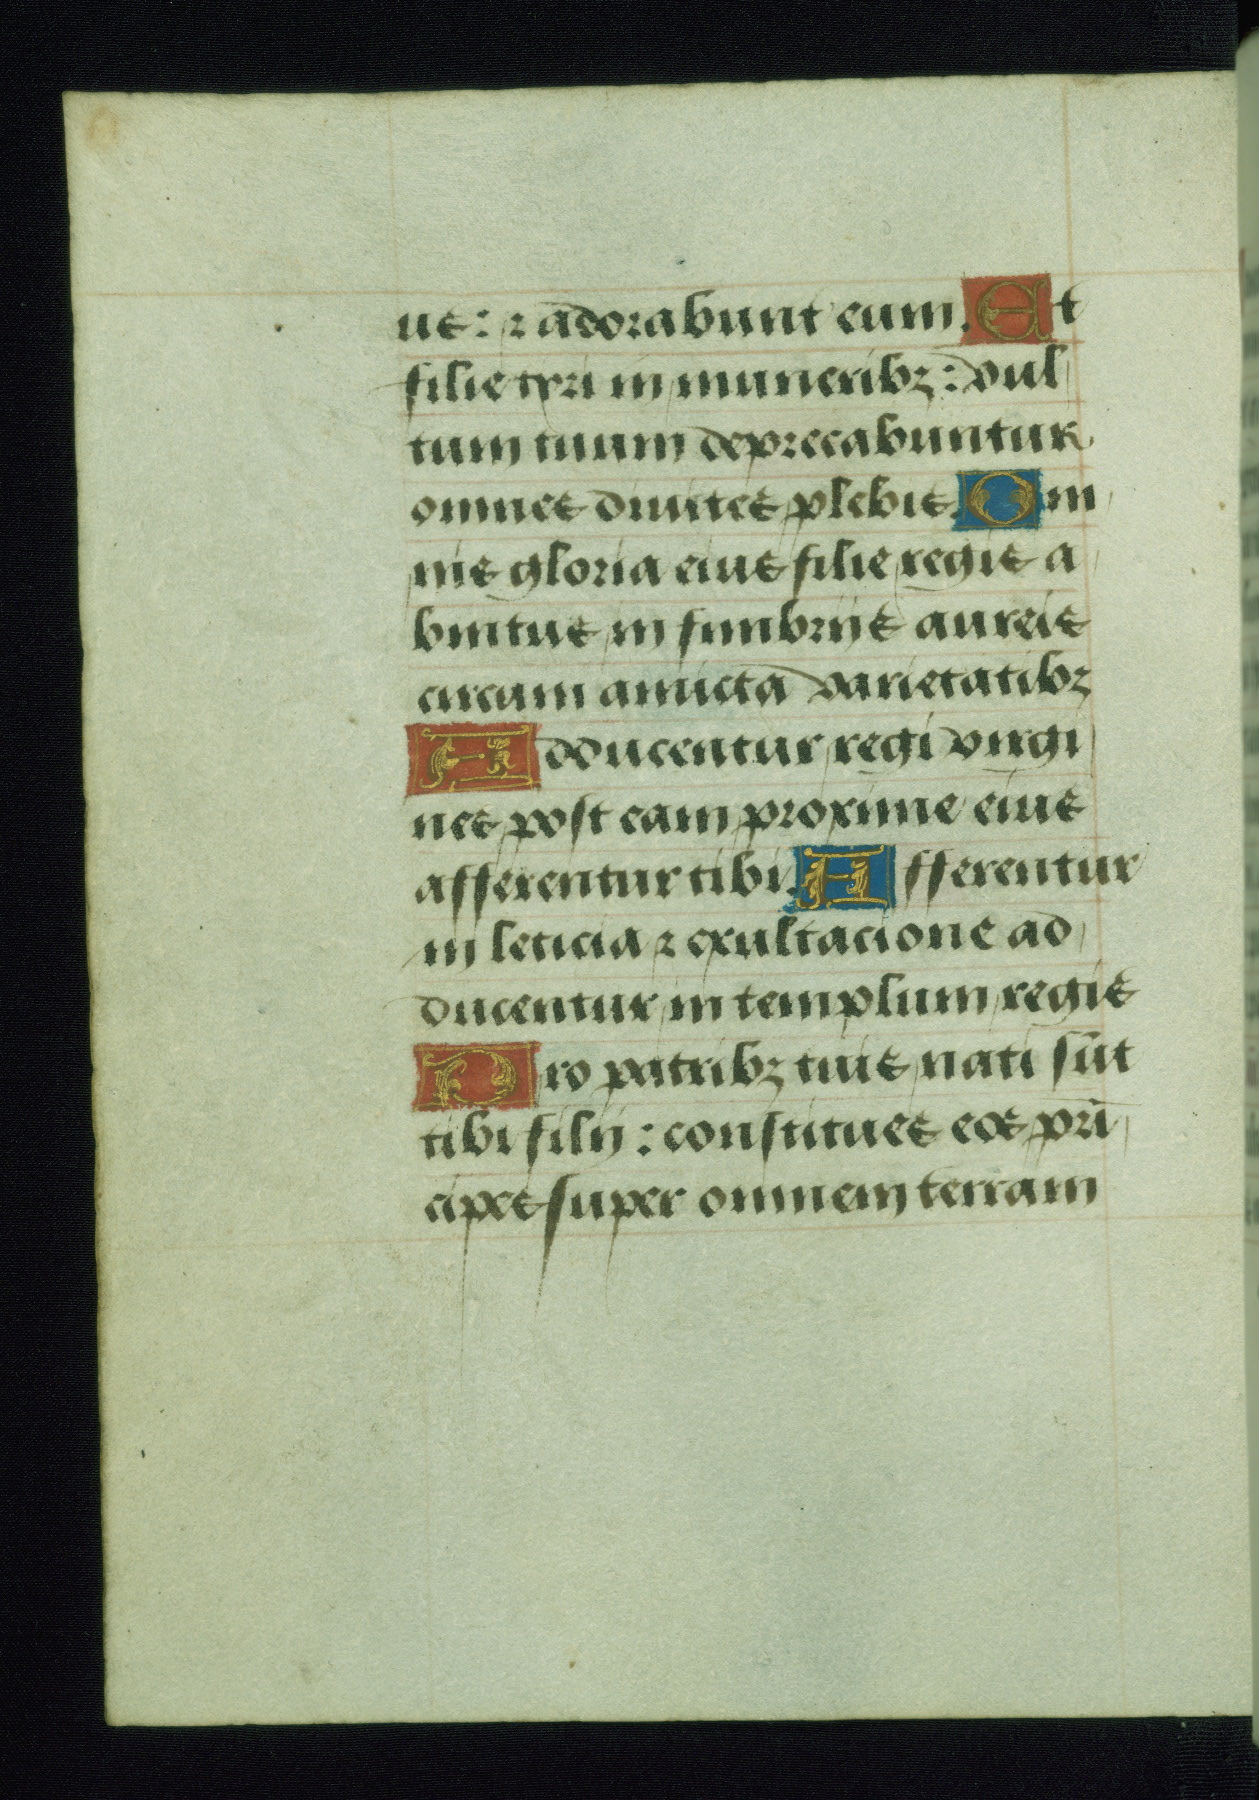 us: ⁊ adorabunt eum. Et
filie tyri in muneribꝫ: vul
tum tuum deprecabuntur
omnes diuites plebis. Om
nis gloria eius filie regis a
bintus in fimbrijs aureis
circum amicta varietatibꝫ
Adducentur regi virgi
nes post eam proxime eius
afferentur tibi. Afferentur
in leticia ⁊ exultacione ad
ducentur in templum regis
Pro patribꝫ tuis nati sūt
tibi filij: constitues eos prī
cipes super omnem terram